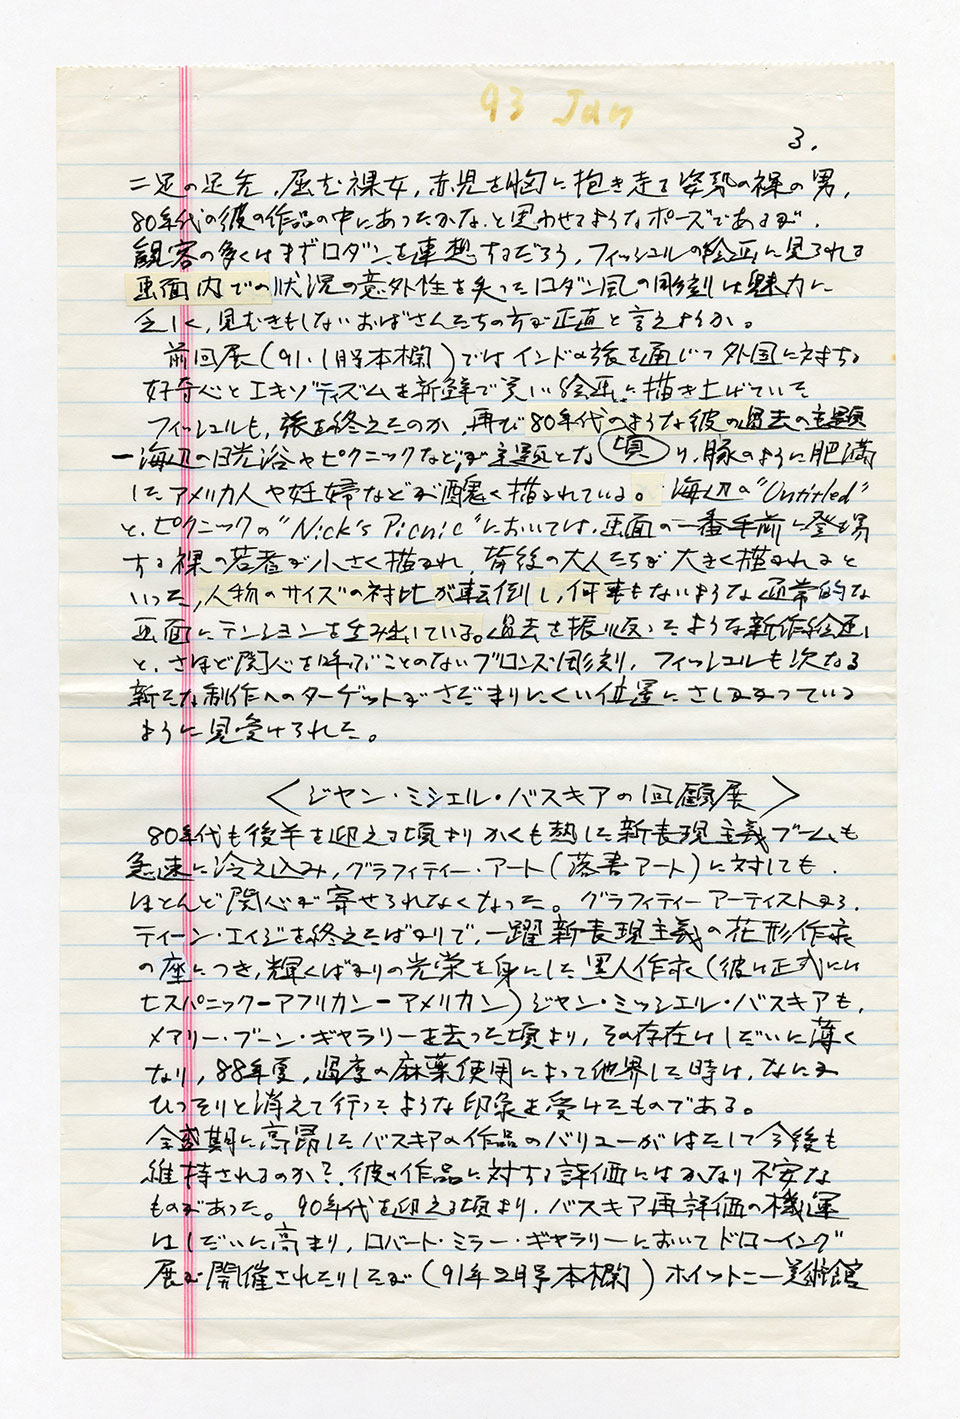 93 Jan
3.
二足の足先，屈む裸女，赤児を胸に抱き走る姿勢の裸の男，
80年代の彼の作品の中にあったかな、と思わせるようなポーズであるが，
観客の多くはまずロダンを連想するだろう，フィッシュルの絵画に見られる
画面内での状況の意外性を失ったロダン風の彫刻は魅力に
乏しく，見むきもしないおばさんたちの方が正直と言えようか。
前回展（91.1月号本欄）ではインドの旅を通じて外国に対する
好奇心とエキゾティズムを新鮮で荒い絵画に描き上げていた
フィッシュルも，旅を終えたのか，再び80年代のような彼の過去の主題
ー海辺の日光浴やピクニックなどが主題とな 頃 り，豚のように肥満
したアメリカ人や妊婦などが醜く描かれている。海辺の"Untitled"
と，ピクニックの"Nick's Picnic"においては，画面の一番手前に登場
する裸の若者が小さく描かれ，背後の大人たちが大きく描かれると
いった，人物のサイズの対比が転倒し，何事もないような通常的な
画面にテンションを生み出している。過去を振り返ったような新作絵画
と，さほど関心を呼ぶことのないブロンズ彫刻，フィッシュルも次なる
新たな制作へのターゲットがさだまりにくい位置にさしかかっている
ように見受けられた。
〈ジャン・ミシェル・バスキアの回顧展〉
80年代も後半を迎える頃よりかくも熱した新表現主義ブームも
急速に冷え込み，グラフィティー・アート（落書アート）に対しても，
ほとんど関心が寄せられなくなった。グラフィティーアーティストから，
ティーン・エイジを終えたばかりで，一躍新表現主義の花形作家
の座につき，輝くばかりの光栄を身にした黒人作家（彼は正式には
ヒスパニックーアフリカンーアメリカン）ジャン・ミッシェル・バスキアも，
メアリー・ブーン・ギャラリーを去った頃より，その存在はしだいに薄く
なり，88年夏，過度の麻薬使用によって他界した時は，なにか
ひっそりと消えて行ったような印象を受けたものである。
全盛期に高昂したバスキアの作品のバリューがはたして今後も
維持されるのか？，彼の作品に対する評価にはかなり不安な
ものがあった。90年代を迎える頃より，バスキア再評価の機運
はしだいに高まり，ロバート・ミラー・ギャラリーにおいてドローイング
展が開催されたりしたが（91年2月号本欄）ホイットニー美術館